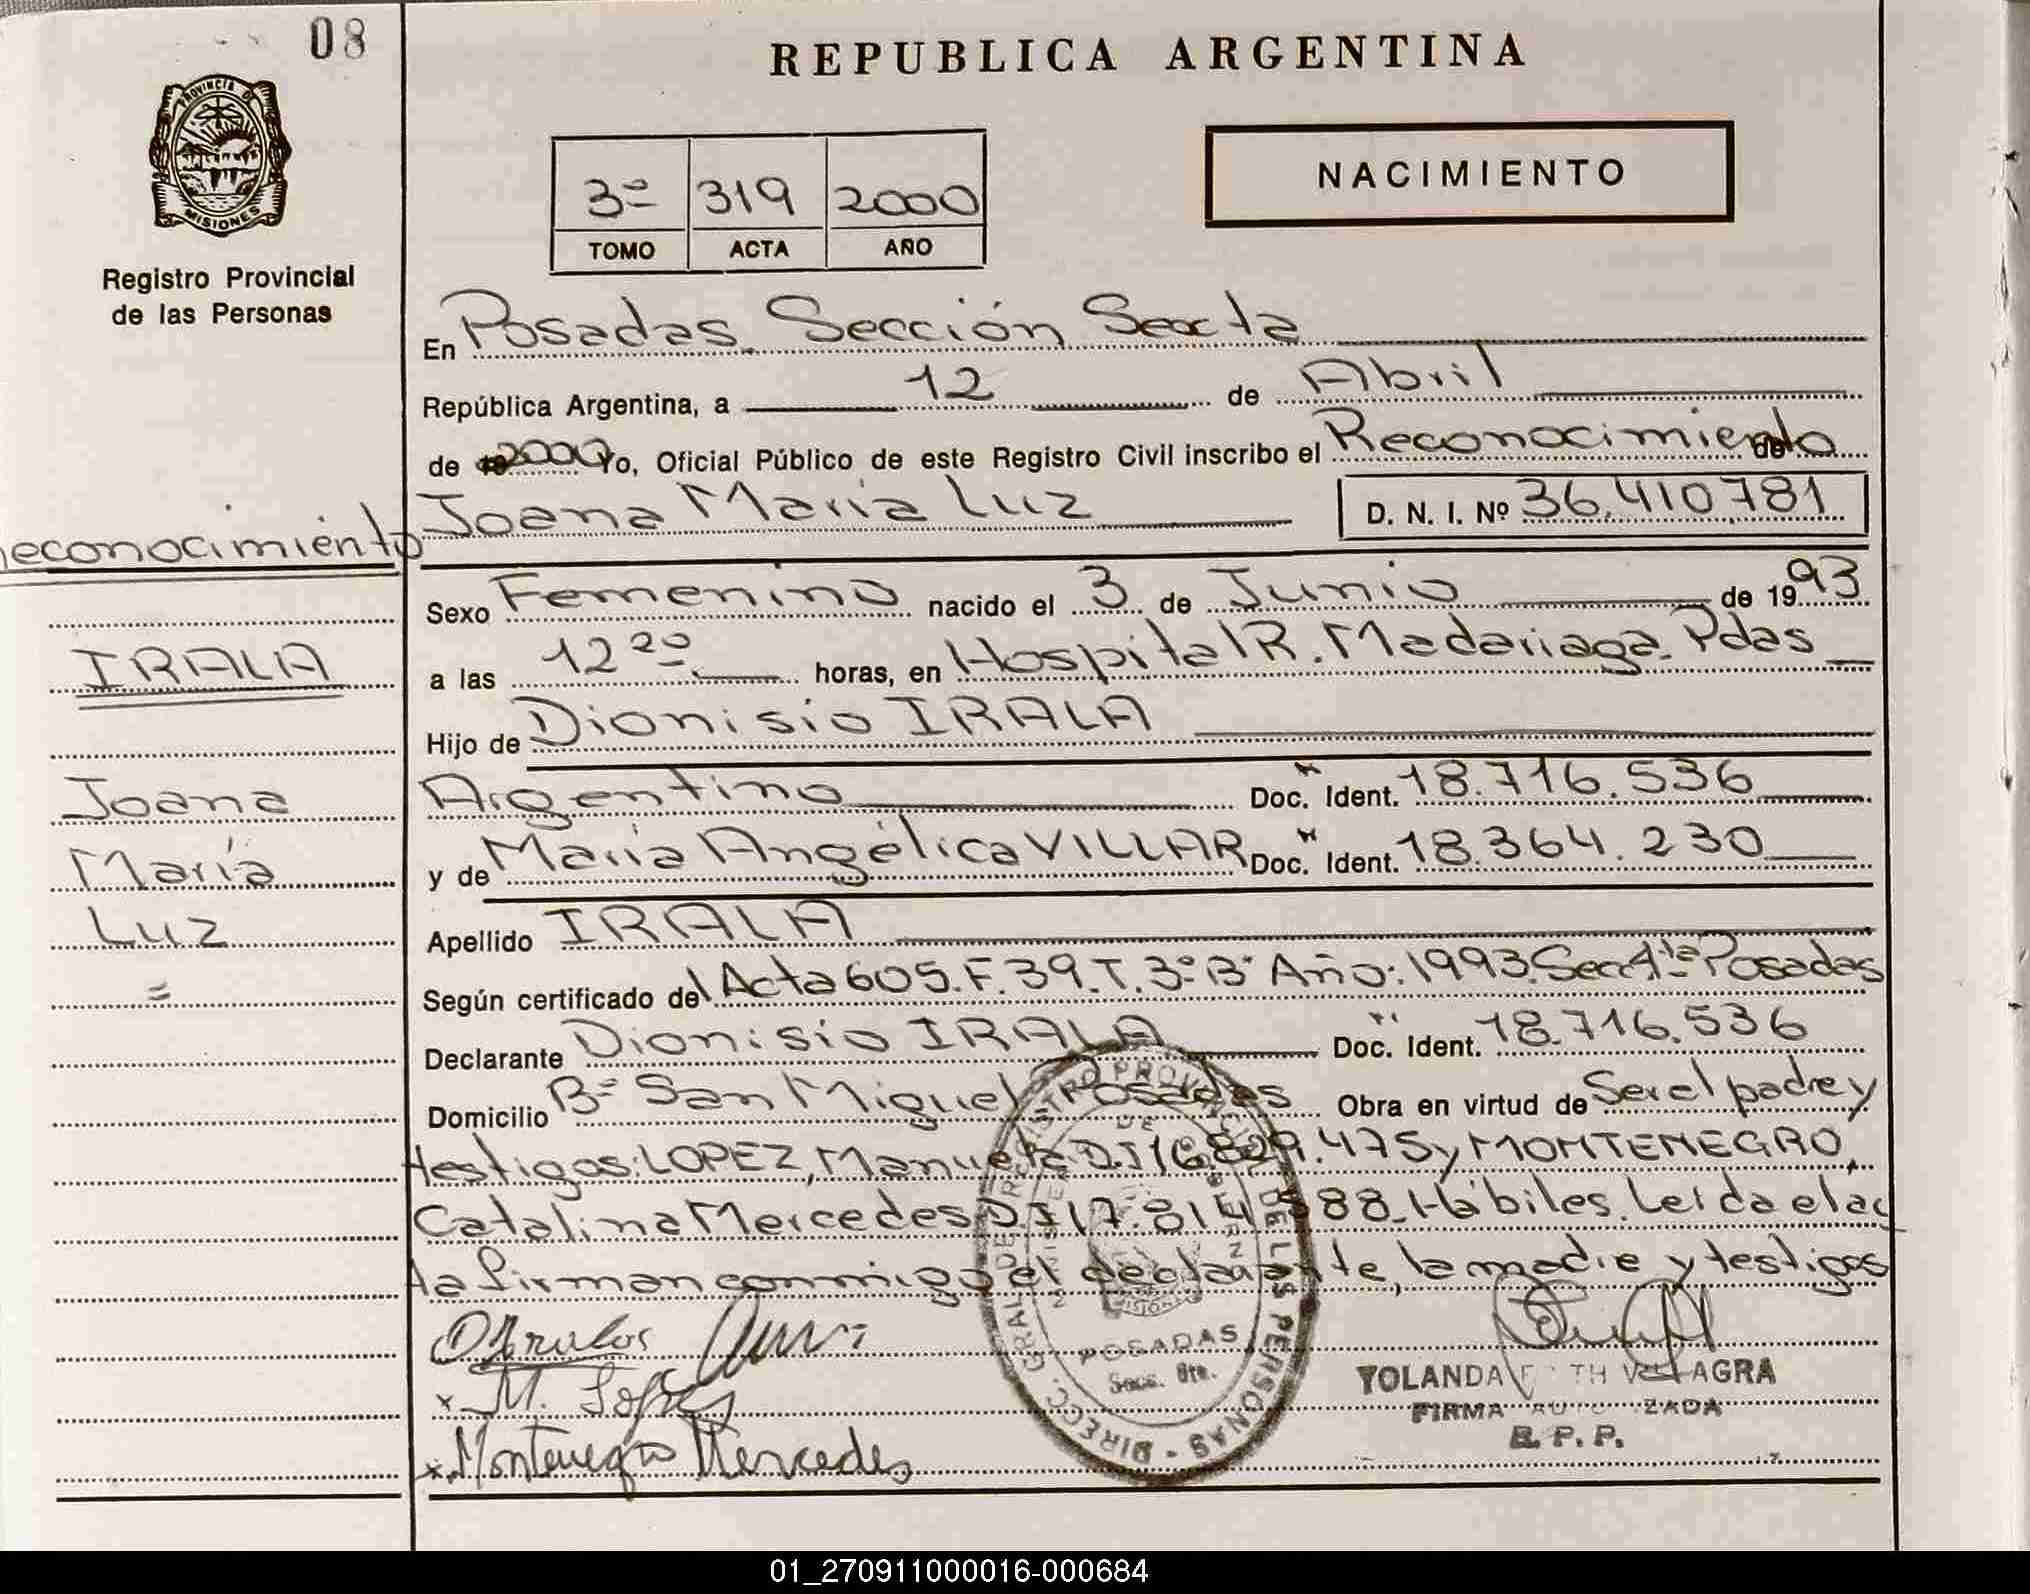 08
PROVINCIA DE
MISIONES
Registro Provincial
de las Personas
REPUBLICA ARGENTINA
NACIMIENTO
3º 319 2000
TOMO ACTA AÑO
En Posadas Sección Sexta
República Argentina, a 12 de Abril
de 2000 Yo, Oficial Público de este Registro Civil inscribo el Reconocimiento de
Joana María Luz D. N. I. Nº 36.410.781
reconocimiento
IRALA
Joana
María
Luz
=
Sexo Femenino nacido el 3 de Junio de 1993
a las 12 20 horas, en Hospital R. Madariaga. Pdas
Hijo de Dionisio IRALA
Argentino Doc. Ident. 18.716.536
y de María Angélica VILLAR Doc. Ident. 18.364.230
Apellido IRALA
Según certificado del Acta 605. F. 39. T. 3º B° Año: 1993. Sec 4ta Posadas
Declarante Dionisio IRALA Doc. Ident. 18.716.536
Domicilio Bº San Miguel Posadas Obra en virtud de Ser el padre y
testigos: LOPEZ, Manuela D.I 16.829.475 y MONTENEGRO,
Catalina Mercedes DI 17.814.588. Hábiles. Leída el ac
ta firman conmigo el declarante, la madre y testigos
x M. Lopez
x Montenegro Mercedes
DIRECC. GRAL. DE REGISTRO PROVINCIAL DE LAS PERSONAS
MISIONES
POSADAS
Secc. 6ta.
YOLANDA VILLAGRA
FIRMA AUTORIZADA
R. P. P.
01_270911000016-000684